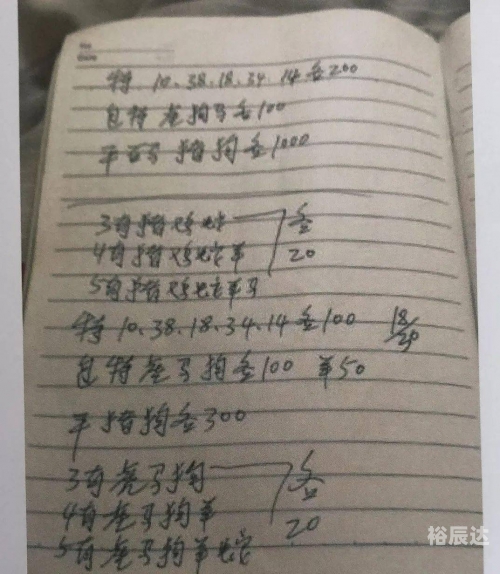 特 10.38.18.34.14各200
包特虎狗马各100
平 马猪狗各1000
3肖猪鸡蛇 各
4肖猪鸡蛇羊 20
5肖猪鸡蛇羊马
特10.38.18.34.14各100 18/20
包特虎马狗各100 羊50
平猪狗各300
3肖虎马狗 各
4肖虎马狗羊 20
5肖虎马狗羊蛇
裕辰达